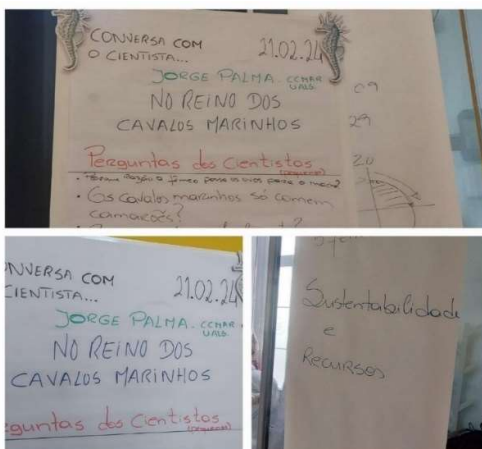 CONVERSA COM
O CIENTISTA...
21.02.24
JORGE PALMA - CCMAR
UALG
NO REINO DOS
CAVALOS MARINHOS
Perguntas dos Cientistas
(pequenos)
a fêmea passa os ovos para o macho?
• Os cavalos marinhos só comem
camarões?
29
NVERSA COM
CIENTISTA...
21.02.24
JORGE PALMA - CCMAR
UALG
NO REINO DOS
CAVALOS MARINHOS
eguntas dos Cientistas
(pequenos)
Sustentabilidade
e
Recursos